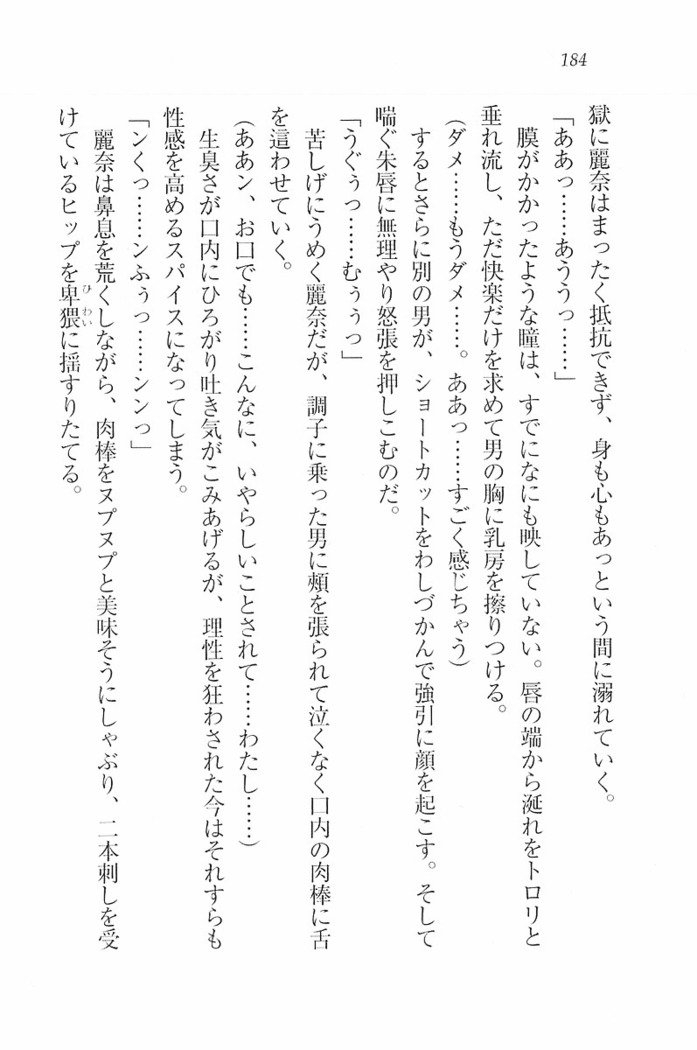 184
獄に麗奈はまったく抵抗できず、身も心もあっという間に溺れていく。
「ああっ……あううっ……」
膜がかかったような瞳は、すでになにも映していない。唇の端から涎れをトロリと
垂れ流し、ただ快楽だけを求めて男の胸に乳房を擦りつける。
(ダメ……もうダメ……。ああっ……すごく感じちゃう)
するとさらに別の男が、ショートカットをわしづかんで強引に顔を起こす。そして
喘ぐ朱唇に無理やり怒張を押しこむのだ。
「うぐぅっ……むぅぅっ」
苦しげにうめく麗奈だが、調子に乗った男に頰を張られて泣くなく口内の肉棒に舌
を這わせていく。
(ああン、お口でも……こんなに、いやらしいことされて……わたし……)
生臭さが口内にひろがり吐き気がこみあげるが、理性を狂わされた今はそれすらも
性感を高めるスパイスになってしまう。
「ンくっ……ンふぅっ……ンンっ」
麗奈は鼻息を荒くしながら、肉棒をヌプヌプと美味そうにしゃぶり、二本刺しを受
けているヒップを卑猥(ひわい)に揺すりたてる。